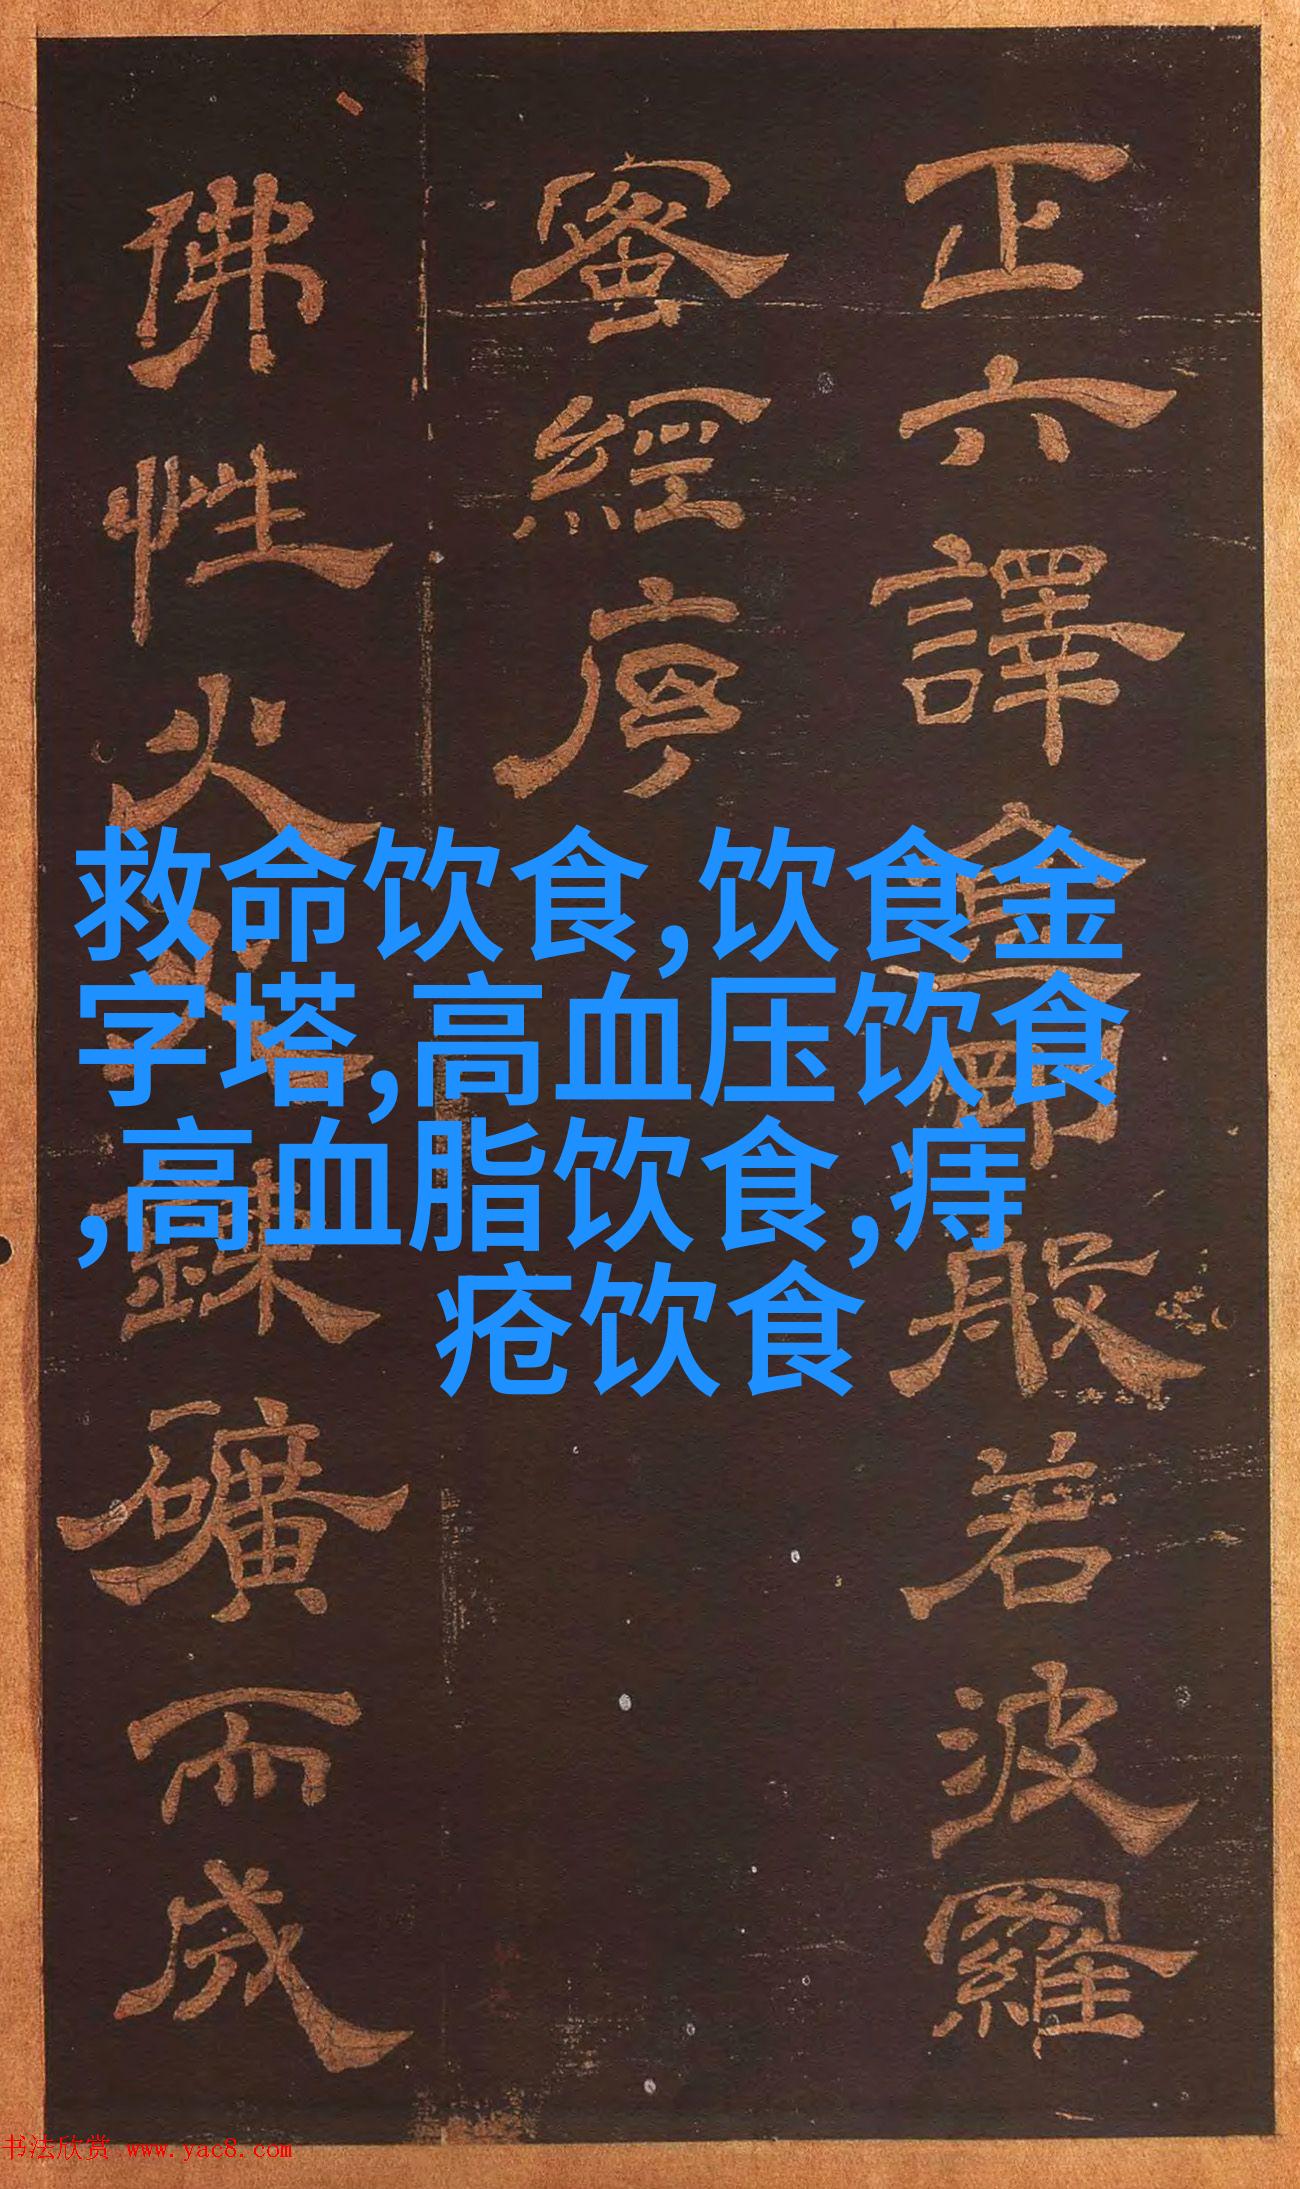 救命饮食,饮食金
字塔,高血压饮食
,高血脂饮食,痔
疮饮食
正六譯金剛般若波羅
蜜經序
佛性火
鍊礦而成
书法欣赏 www.yac8.com